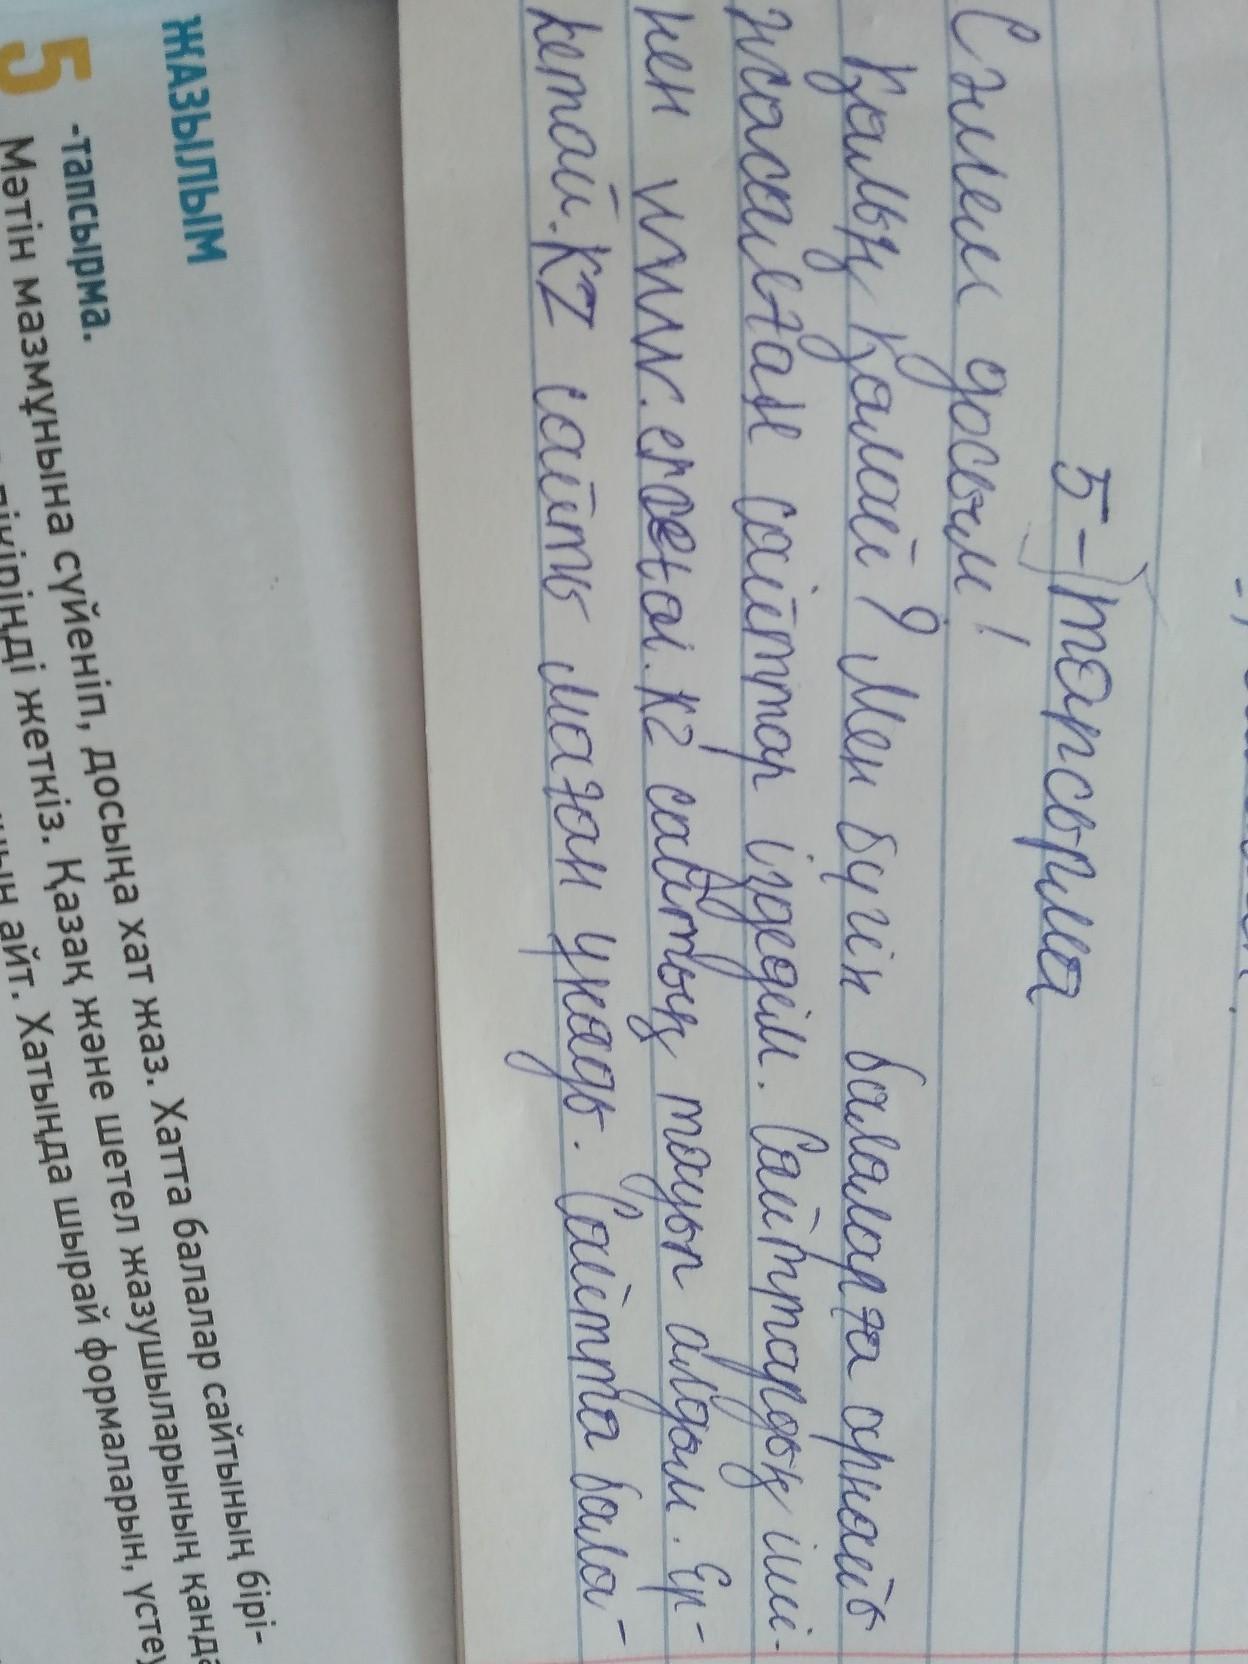 5-тапсырма
Сәлем досым!
Қалың қалай? Мен бүгін балаларға арнайы
жасалған сайттар іздедім. Сайттардың іші-
нен www.ertegi.kz сайтың тауып алдым. Ер-
кетай.KZ сайты маған ұнады. Сайтта бала-
ЖАЗЫЛЫМ
5 -тапсырма.
Мәтін мазмұнына сүйеніп, досыңа хат жаз. Хатта балалар сайтының бірі-
пікіріңді жеткіз. Қазақ және шетел жазушыларының қанда
айт. Хатыңда шырай формаларын, үстеу